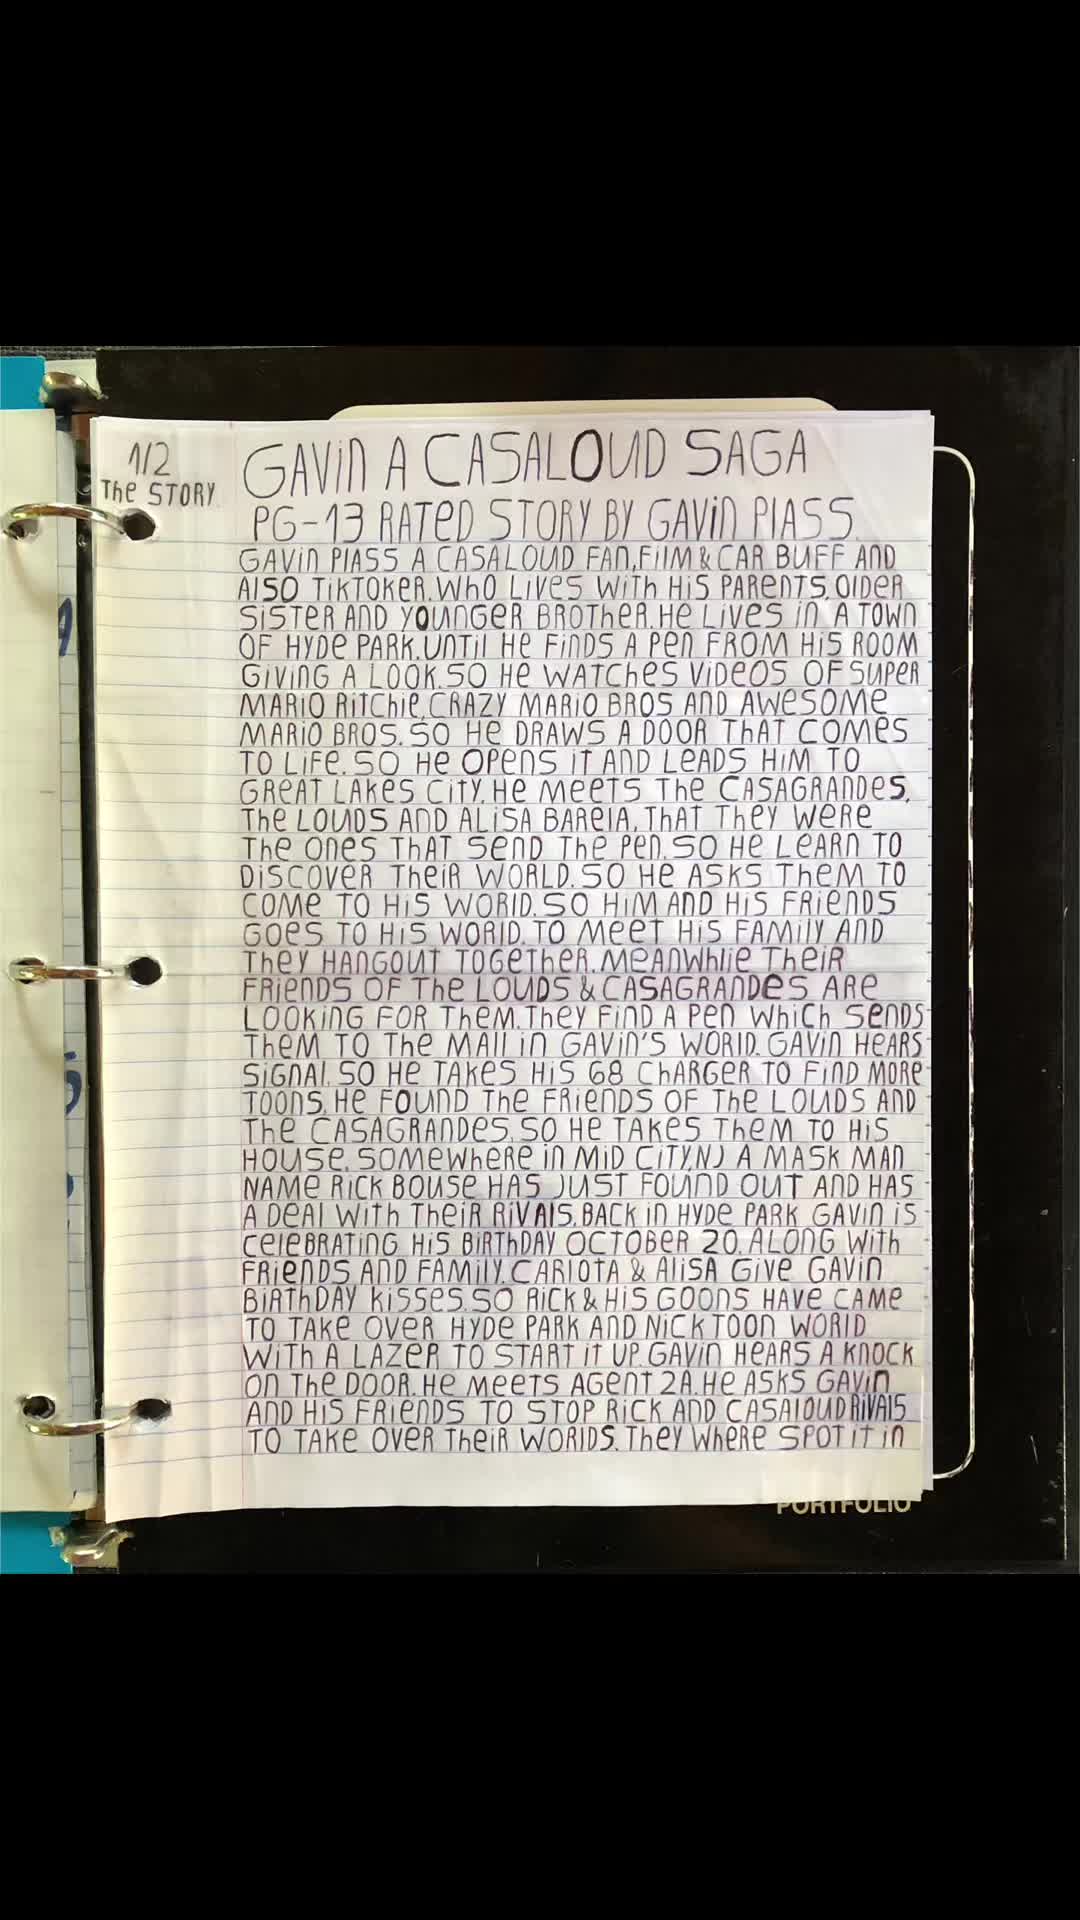 1/2
The STORY.
GAViN A CASALOUD SAGA
PG-13 RATED STORY BY GAViN PlASS.
GAViN PlASS A CASALOUD FAN, FilM & CAR BUFF AND
AlSO TiKTOKER. WHO LIVES WITH HiS PARENTS, OlDER
SISTER AND YOUNGER BROTHER. HE LiVES iN A TOWN
OF HYDE PARK. UNTil HE FiNDS A PEN FROM HiS ROOM
GIVING A LOOK. SO HE WATCHES VIDEOS OF SUPER
MARIO RITCHIE, CRAZY MARIO BROS AND AWESOME
MARIO BROS. SO HE DRAWS A DOOR THAT COMES
TO LIFE. SO HE OPENS IT AND LEADS HIM TO
GREAT LAKES CITY. HE MEETS THE CASAGRANDES,
THE LOUDS AND ALISA BARElA, THAT THEY WERE
THE ONES THAT SEND THE PEN. SO HE LEARN TO
DISCOVER THEIR WORLD. SO HE ASKS THEM TO
COME TO HIS WORlD. SO HIM AND HIS FRIENDS
GOES TO HIS WORlD. TO MEET HIS FAMIlY AND
THEY HANGOUT TOGETHER. MEANWHlIE THEIR
FRIENDS OF THE LOUDS & CASAGRANDES ARE
LOOKING FOR THEM. THEY FIND A PEN WHICH SENDS
THEM TO THE MAll IN GAVIN'S WORlD. GAVIN HEARS
SIGNAl. SO HE TAKES HIS 68 CHARGER TO FIND MORE
TOONS. HE FOUND THE FRIENDS OF THE LOUDS AND
THE CASAGRANDES. SO HE TAKES THEM TO HIS
HOUSE. SOMEWHERE IN MID CITY, NJ A MASK MAN
NAME RICK BOUSE HAS JUST FOUND OUT AND HAS
A DEAl WITH THEIR RIVAlS. BACK IN HYDE PARK GAVIN IS
CElEBRATING HIS BIRTHDAY OCTOBER 20. ALONG WITH
FRIENDS AND FAMIlY. CARlOTA & AlISA GIVE GAVIN
BIRTHDAY KISSES. SO RICK & HIS GOONS HAVE CAME
TO TAKE OVER HYDE PARK AND NICKTOON WORlD
WITH A LAZER TO START IT UP. GAVIN HEARS A KNOCK
ON THE DOOR. HE MEETS AGENT 2A. HE ASKS GAVIN
AND HIS FRIENDS TO STOP RICK AND CASAlOUD RIVAlS
TO TAKE OVER THEIR WORlDS. THEY WHERE SPOT IT IN
PORTFOLIO